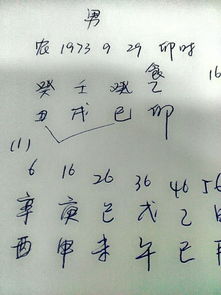 男
农1973 9 29 卯时
食
癸 壬 癸 乙 16
丑 戌 巳 卯
(1)
6 16 26 36 46 56
辛 庚 己 戊 乙
酉 甲 未 午 巳